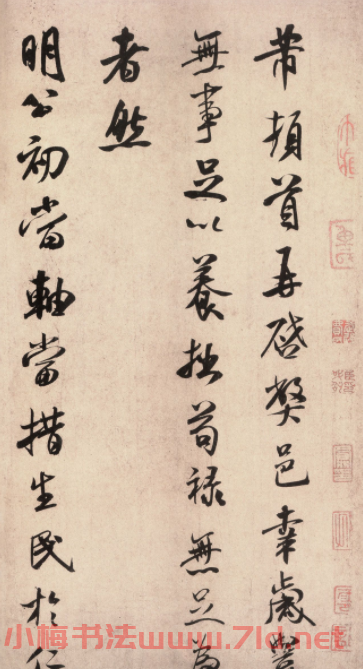 芾頓首再啓弊邑幸歲豐
無事足以養拙苟祿無足為
者然
明公初當軸當措生民於仁
小梅书法www.7ld.net